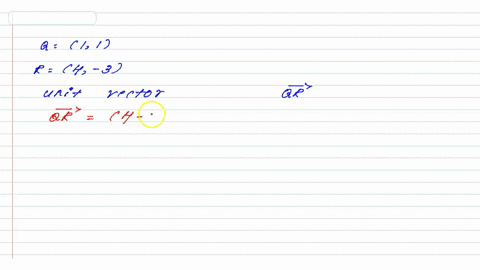 Q = (1, 1)
R = (4, -3)
unit vector QR
QR = (4 -